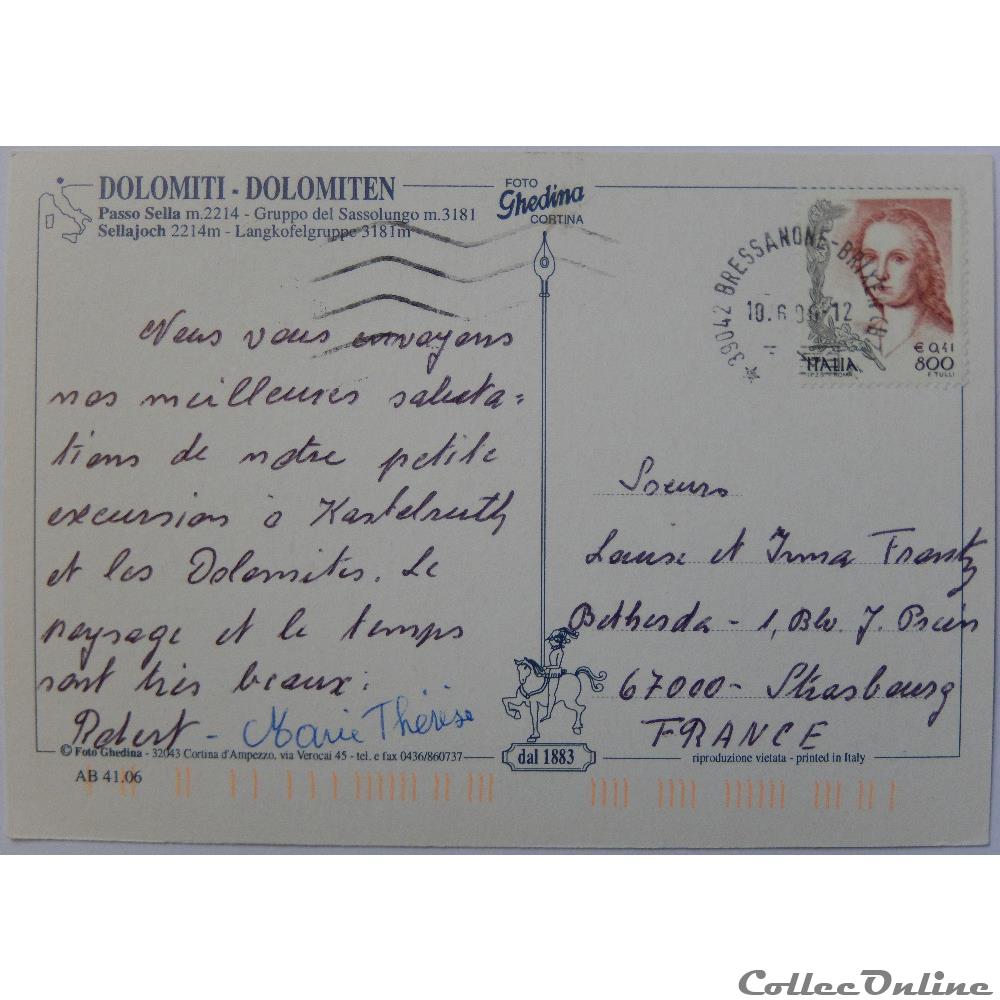 DOLOMITI - DOLOMITEN
Passo Sella m.2214 - Gruppo del Sassolungo m.3181
Sellajoch 2214m - Langkofelgruppe 3181m
FOTO
Ghedina
CORTINA
39042 BRESSANONE-BRIXEN
10.6. 12
ITALIA
€ 0,41
800
E. TULLI
Nous vous envoyons
nos meilleures saluta=
tions de notre petite
excursion à Kastelruth
et les Dolomites. Le
paysage et le temps
sont très beaux.
Robert - Marie Thérèse
Soeurs
Louise et Irma Frantz
Bethesda - 1, Blv. J. Preis
67000 - Strasbourg
FRANCE
© Foto Ghedina - 32043 Cortina d'Ampezzo, via Verocai 45 - tel. e fax 0436/860737
dal 1883
riproduzione vietata - printed in Italy
AB 41.06
CollecOnline